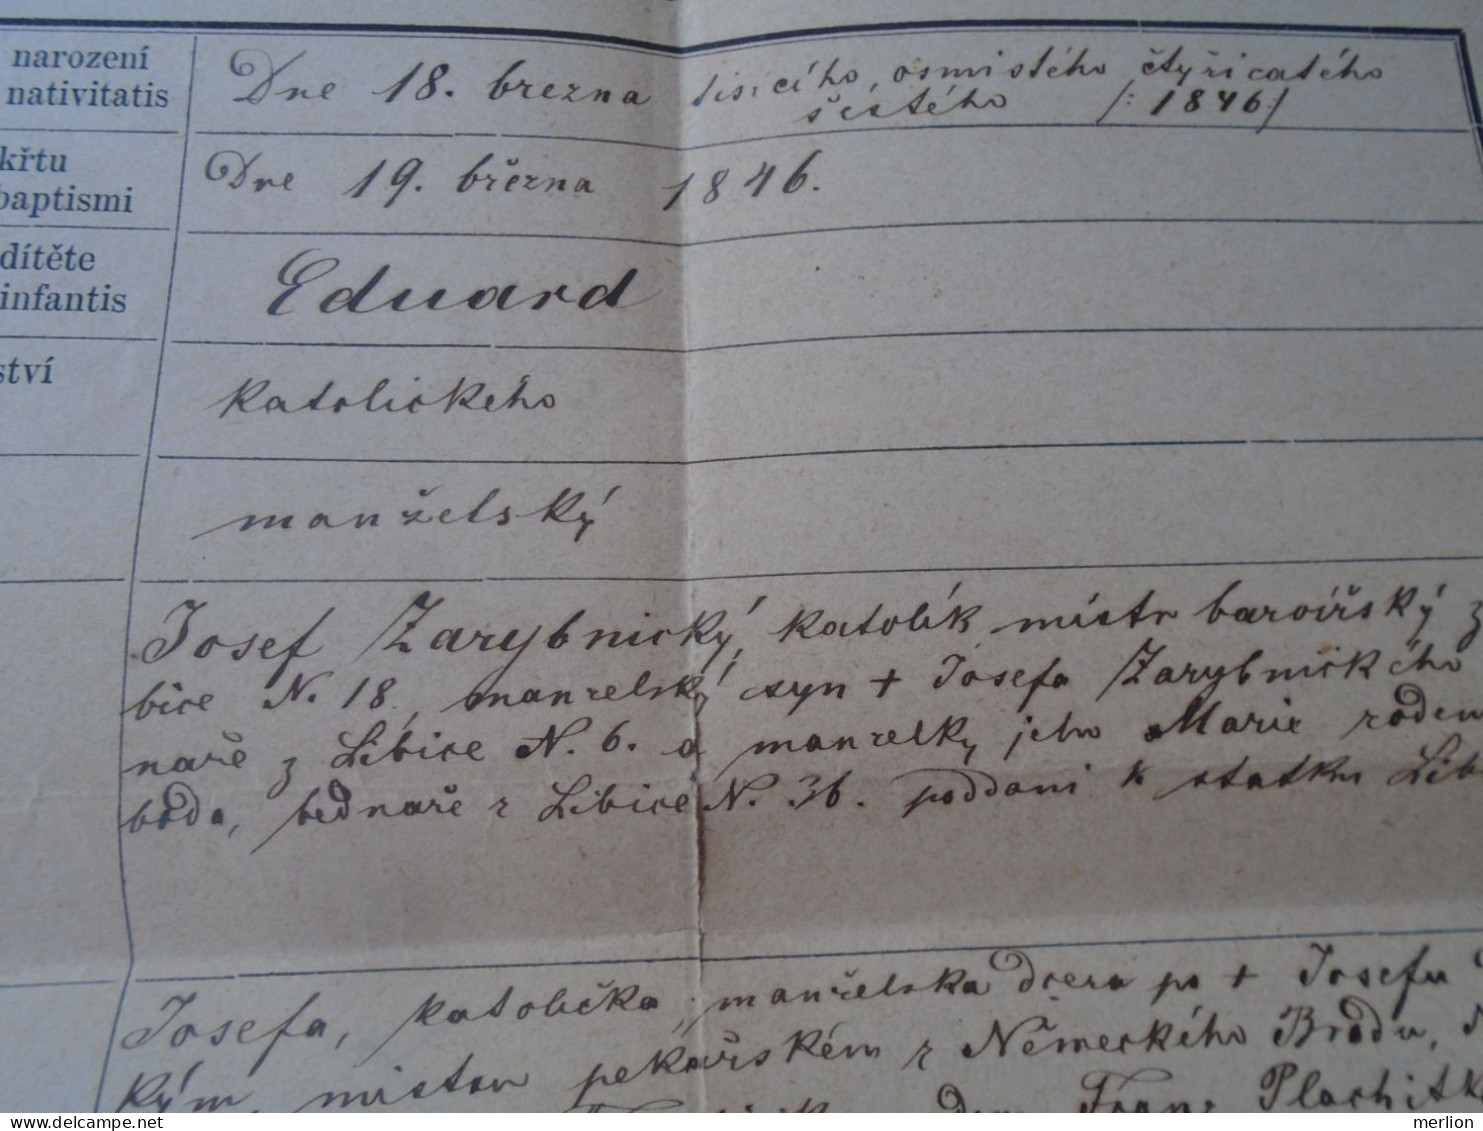 narození
nativitatis
Dne 18. brezna tisícího, osmistého čtyřicatého
šestého /: 1846 :/
křtu
baptismi
Dne 19. března 1846.
dítěte
infantis
Eduard
ství
katolického
manželský
Josef Zarybnický, katolík mistr barvířský z
bice N. 18, manzelský syn + Josefa Zarybnického
naře z Libice N. 6. a manzelky jeho Marie roden
boda, bednaře z Libice N. 36. poddani k statku Lib
Josefa, katolička, manželska dcera po + Josefu
kým, mistou pekařském z Německého Brodu,
Franz Plachitk
www.delcampe.net
merlion